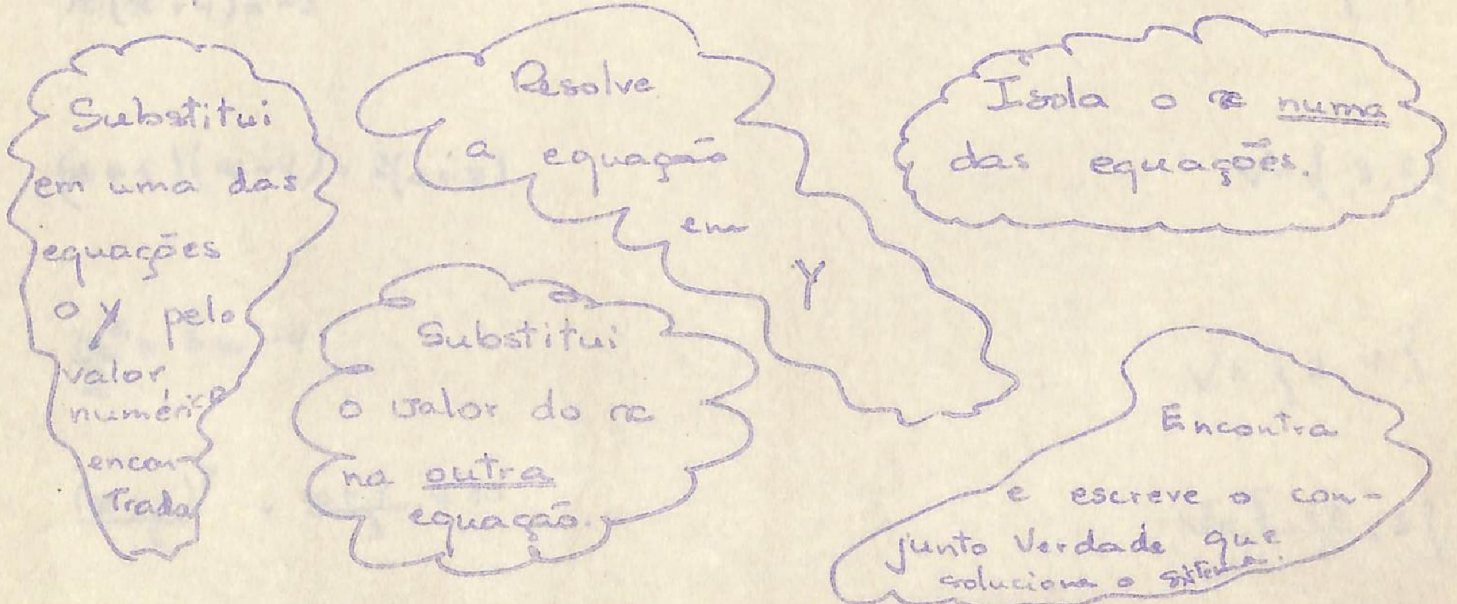 Substitui
em uma das
equações
o y pelo
valor
numérico
encon-
Trada
Resolve
a equação
em
Y
Isola o x numa
das equações.
Substitui
o valor do x
na outra
equação.
Encontra
e escreve o con-
junto Verdade que
soluciona o sistema.